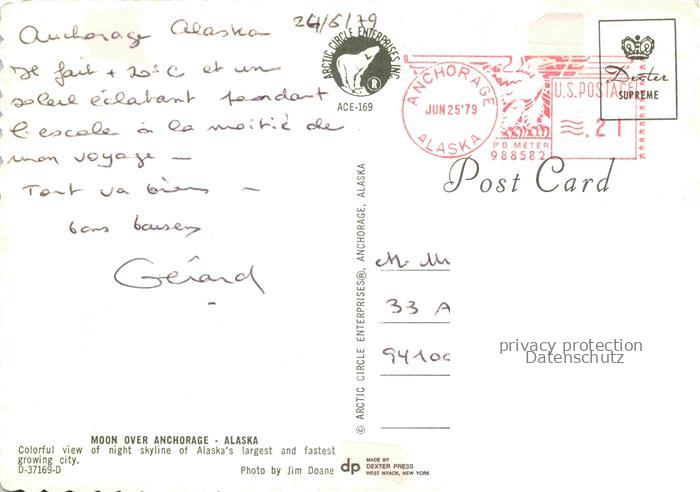 Anchorage Alaska 24/6/79
Il fait + 20°C et un
soleil éclatant pendant
l'escale à la moitié de
mon voyage —
Tout va bien —
bons baisers
Gérard
ARCTIC CIRCLE ENTERPRISES INC.
®
ACE-169
ANCHORAGE
JUN 25 '79
ALASKA
P B METER
988582
U.S. POSTAGE
.21
Dexter
SUPREME
Post Card
© ARCTIC CIRCLE ENTERPRISES®, ANCHORAGE, ALASKA
M. M
33 A
94100
privacy protection
Datenschutz
MOON OVER ANCHORAGE - ALASKA
Colorful view of night skyline of Alaska's largest and fastest
growing city.
D-37169-D Photo by Jim Doane
dp MADE BY
DEXTER PRESS
WEST NYACK, NEW YORK